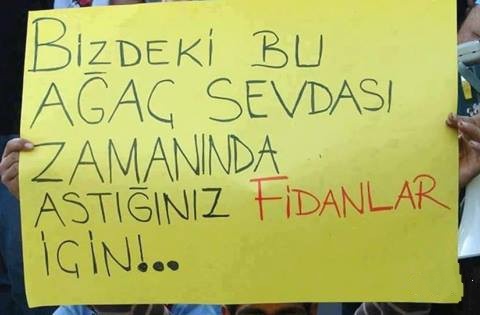 BİZDEKİ BU
AĞAÇ SEVDASI
ZAMANINDA
ASTIĞINIZ FİDANLAR
İÇİN!...